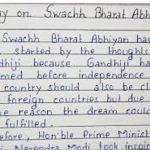 ay on Swachh Bharat Abhi
Swachh Bharat Abhiyan has
started by the thoughts
dhiji because Gandhiji ha
med before independence
country should also be cl
foreign countries but due
the reason the dream could
fulfilled.
efore, Hon'ble Prime Minist
Narendra Modi took inspir